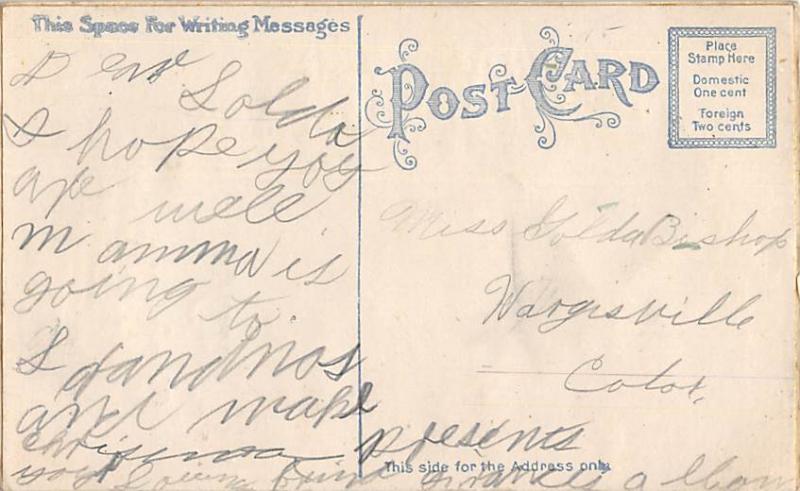 This Space For Writing Messages
Dear Golda
I hope you
are well
mamma is
going to
Grandmas
and make
Chrisemas presents
your loving friend Frances
POST CARD
Place
Stamp Here
Domestic
One cent
Foreign
Two cents
Miss Golda Bishop
Wargisville
Color,
This side for the Address only